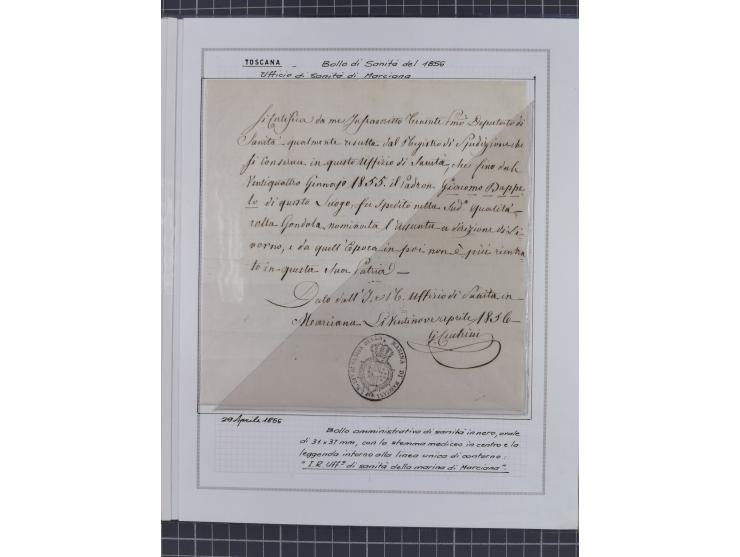 TOSCANA - Bollo di Sanità del 1856
Ufficio di Sanità di Marciana
Si Certifica da me Infrascritto Tenente Pmo Deputato di
Sanità qualmente resulta dal Registro di Spedizione che
si conserva in questo Uffizio di Sanità, che fino dal
Ventiquattro Gennajo 1855. il Padron Giacomo Pappe
lo di questo Luogo, fu spedito nella Sudª Qualità
colla Gondola nominata l'Assunta a direzione di Li
vorno, e da quell'Epoca in poi non è più rientra
to in questa Sua Patria
Dato dall' I. e R. Uffizio di Sanità in
Marciana Li Ventinove aprile 1856
29 Aprile 1856
Bollo amministrativo di sanità in nero, ovale
di 31 x 37 mm, con lo stemma mediceo in centro e la
leggenda intorno alla linea unica di contorno:
"I.R. Uffº di sanità della marina di Marciana"